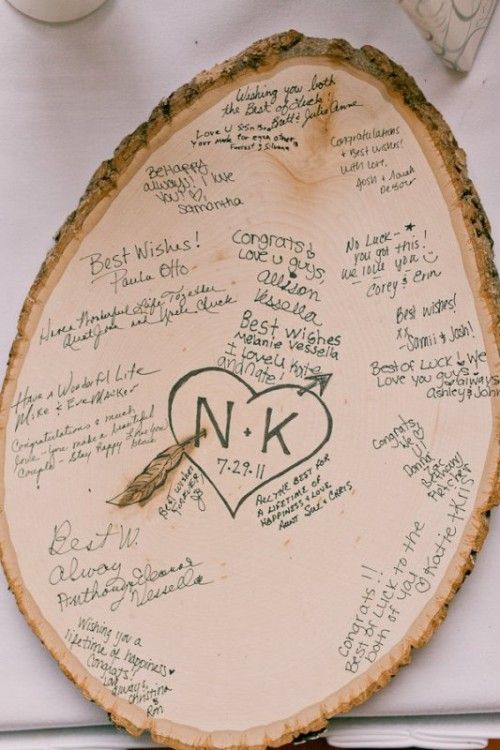 Wishing you both
the Best of Luck!
Britt & Julie Anne
Love U
Your made for each other
Forrest &
Congratulations
& Best Wishes!
With love,
Josh &
Be Happy
always!! I love
you!! ♡
Samantha
Best Wishes!
Paula Otto
Congrats!
Love u guys
Allison
Vessella
No Luck-
you got this!
we love you
Corey & Erin
Have a Wonderful Life Together
Aunt Joan and Uncle Chuck
Best Wishes
Melanie Vessella
I Love U Kate
and Nate!
Best Wishes!
xx
Samii & Josh!
Best of LUCK! We
Love you guys!
♡ always
Ashley & John
Have a Wonderful Life
Mike & Eve
Congratulations & much
love - you make a beautiful
Couple - Stay Happy Love You
N + K
7.29.11
Best Wishes
FOREVER!
ALL THE BEST FOR
A LIFETIME OF
HAPPINESS & LOVE
AUNT SUE & CHRIS
Congrats
Donna
Bethany
Best W.
Alway
Anthony & Eleanor
Vessella
Congrats!!
Best of Luck to the
both of you
Katie & Kris
Wishing you a
lifetime of happiness ♥
Congrats!
Love
always,
Christina
&
Ron